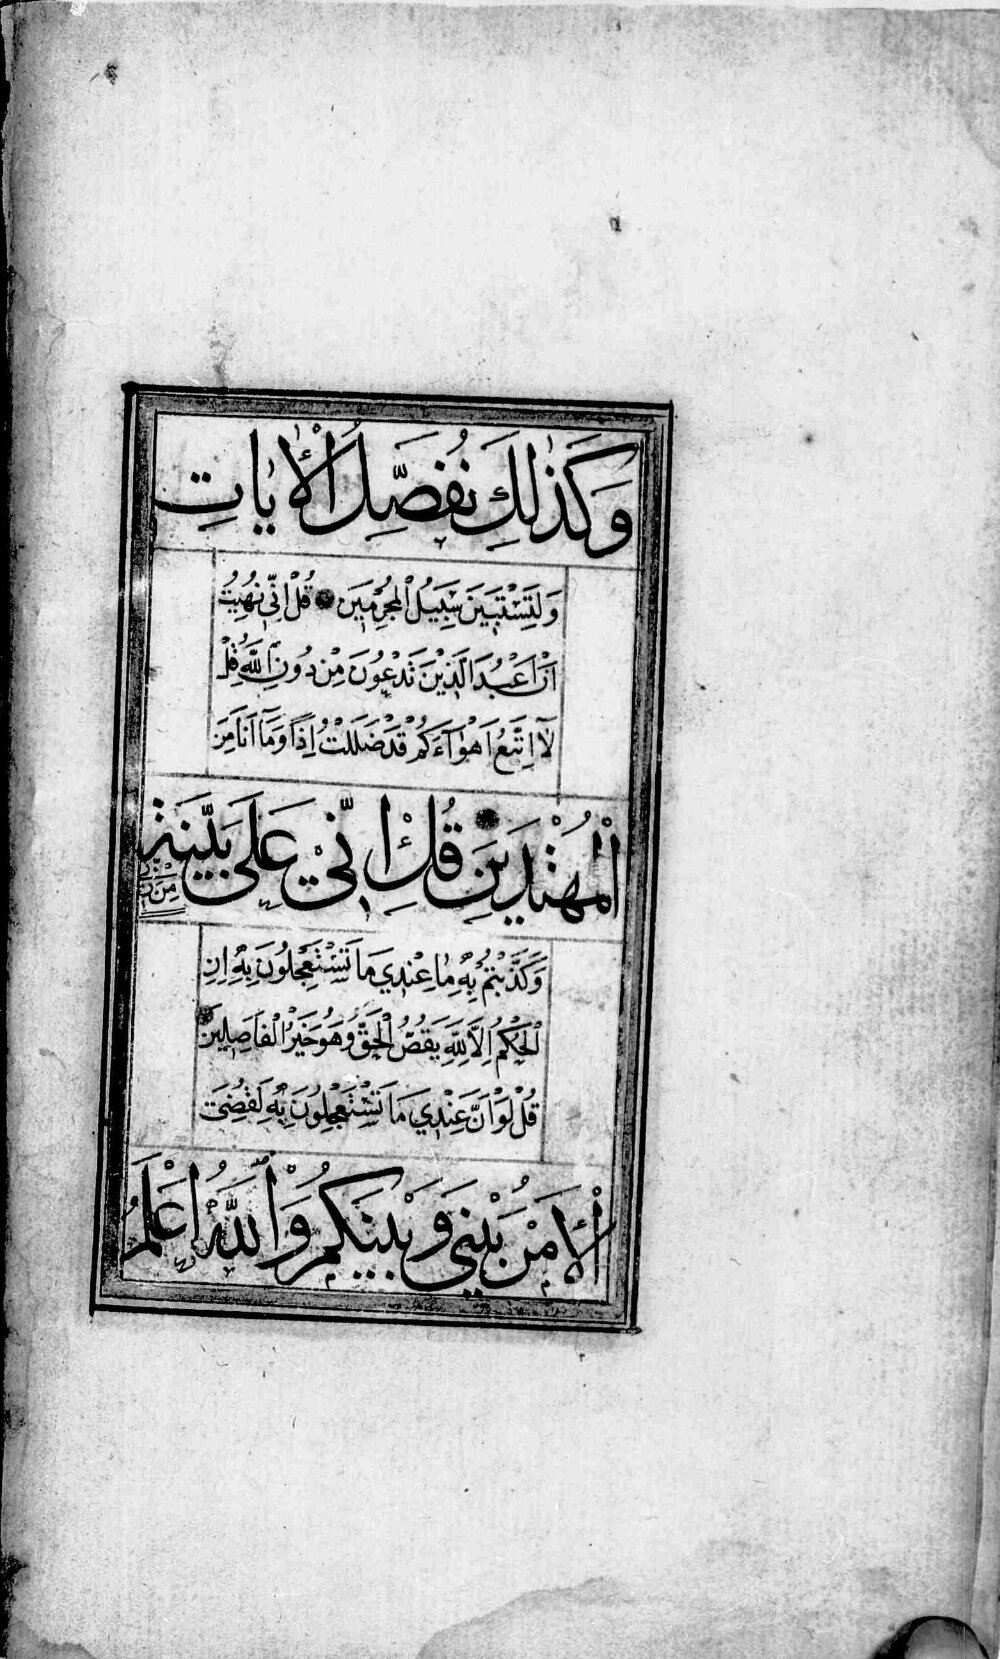 وَكَذٰلِكَ نُفَصِّلُ الْاٰيَاتِ
وَلِتَسْتَبِينَ سَبِيلُ الْمُجْرِمِينَ قُلْ اِنِّي نُهِيتُ
اَنْ اَعْبُدَ الَّذِينَ تَدْعُونَ مِنْ دُونِ اللّٰهِ قُلْ
لَآ اَتَّبِعُ اَهْوَآءَكُمْ قَدْ ضَلَلْتُ اِذًا وَمَآ اَنَا مِنَ
الْمُهْتَدِينَ قُلْ اِنِّي عَلٰى بَيِّنَةٍ
مِنْ رَبِّي
وَكَذَّبْتُمْ بِهِ مَا عِنْدِي مَا تَسْتَعْجِلُونَ بِهِ اِنِ
الْحُكْمُ اِلَّا لِلّٰهِ يَقُصُّ الْحَقَّ وَهُوَ خَيْرُ الْفَاصِلِينَ
قُلْ لَوْ اَنَّ عِنْدِي مَا تَسْتَعْجِلُونَ بِهِ لَقُضِيَ
الْاَمْرُ بَيْنِي وَبَيْنَكُمْ وَاللّٰهُ اَعْلَمُ